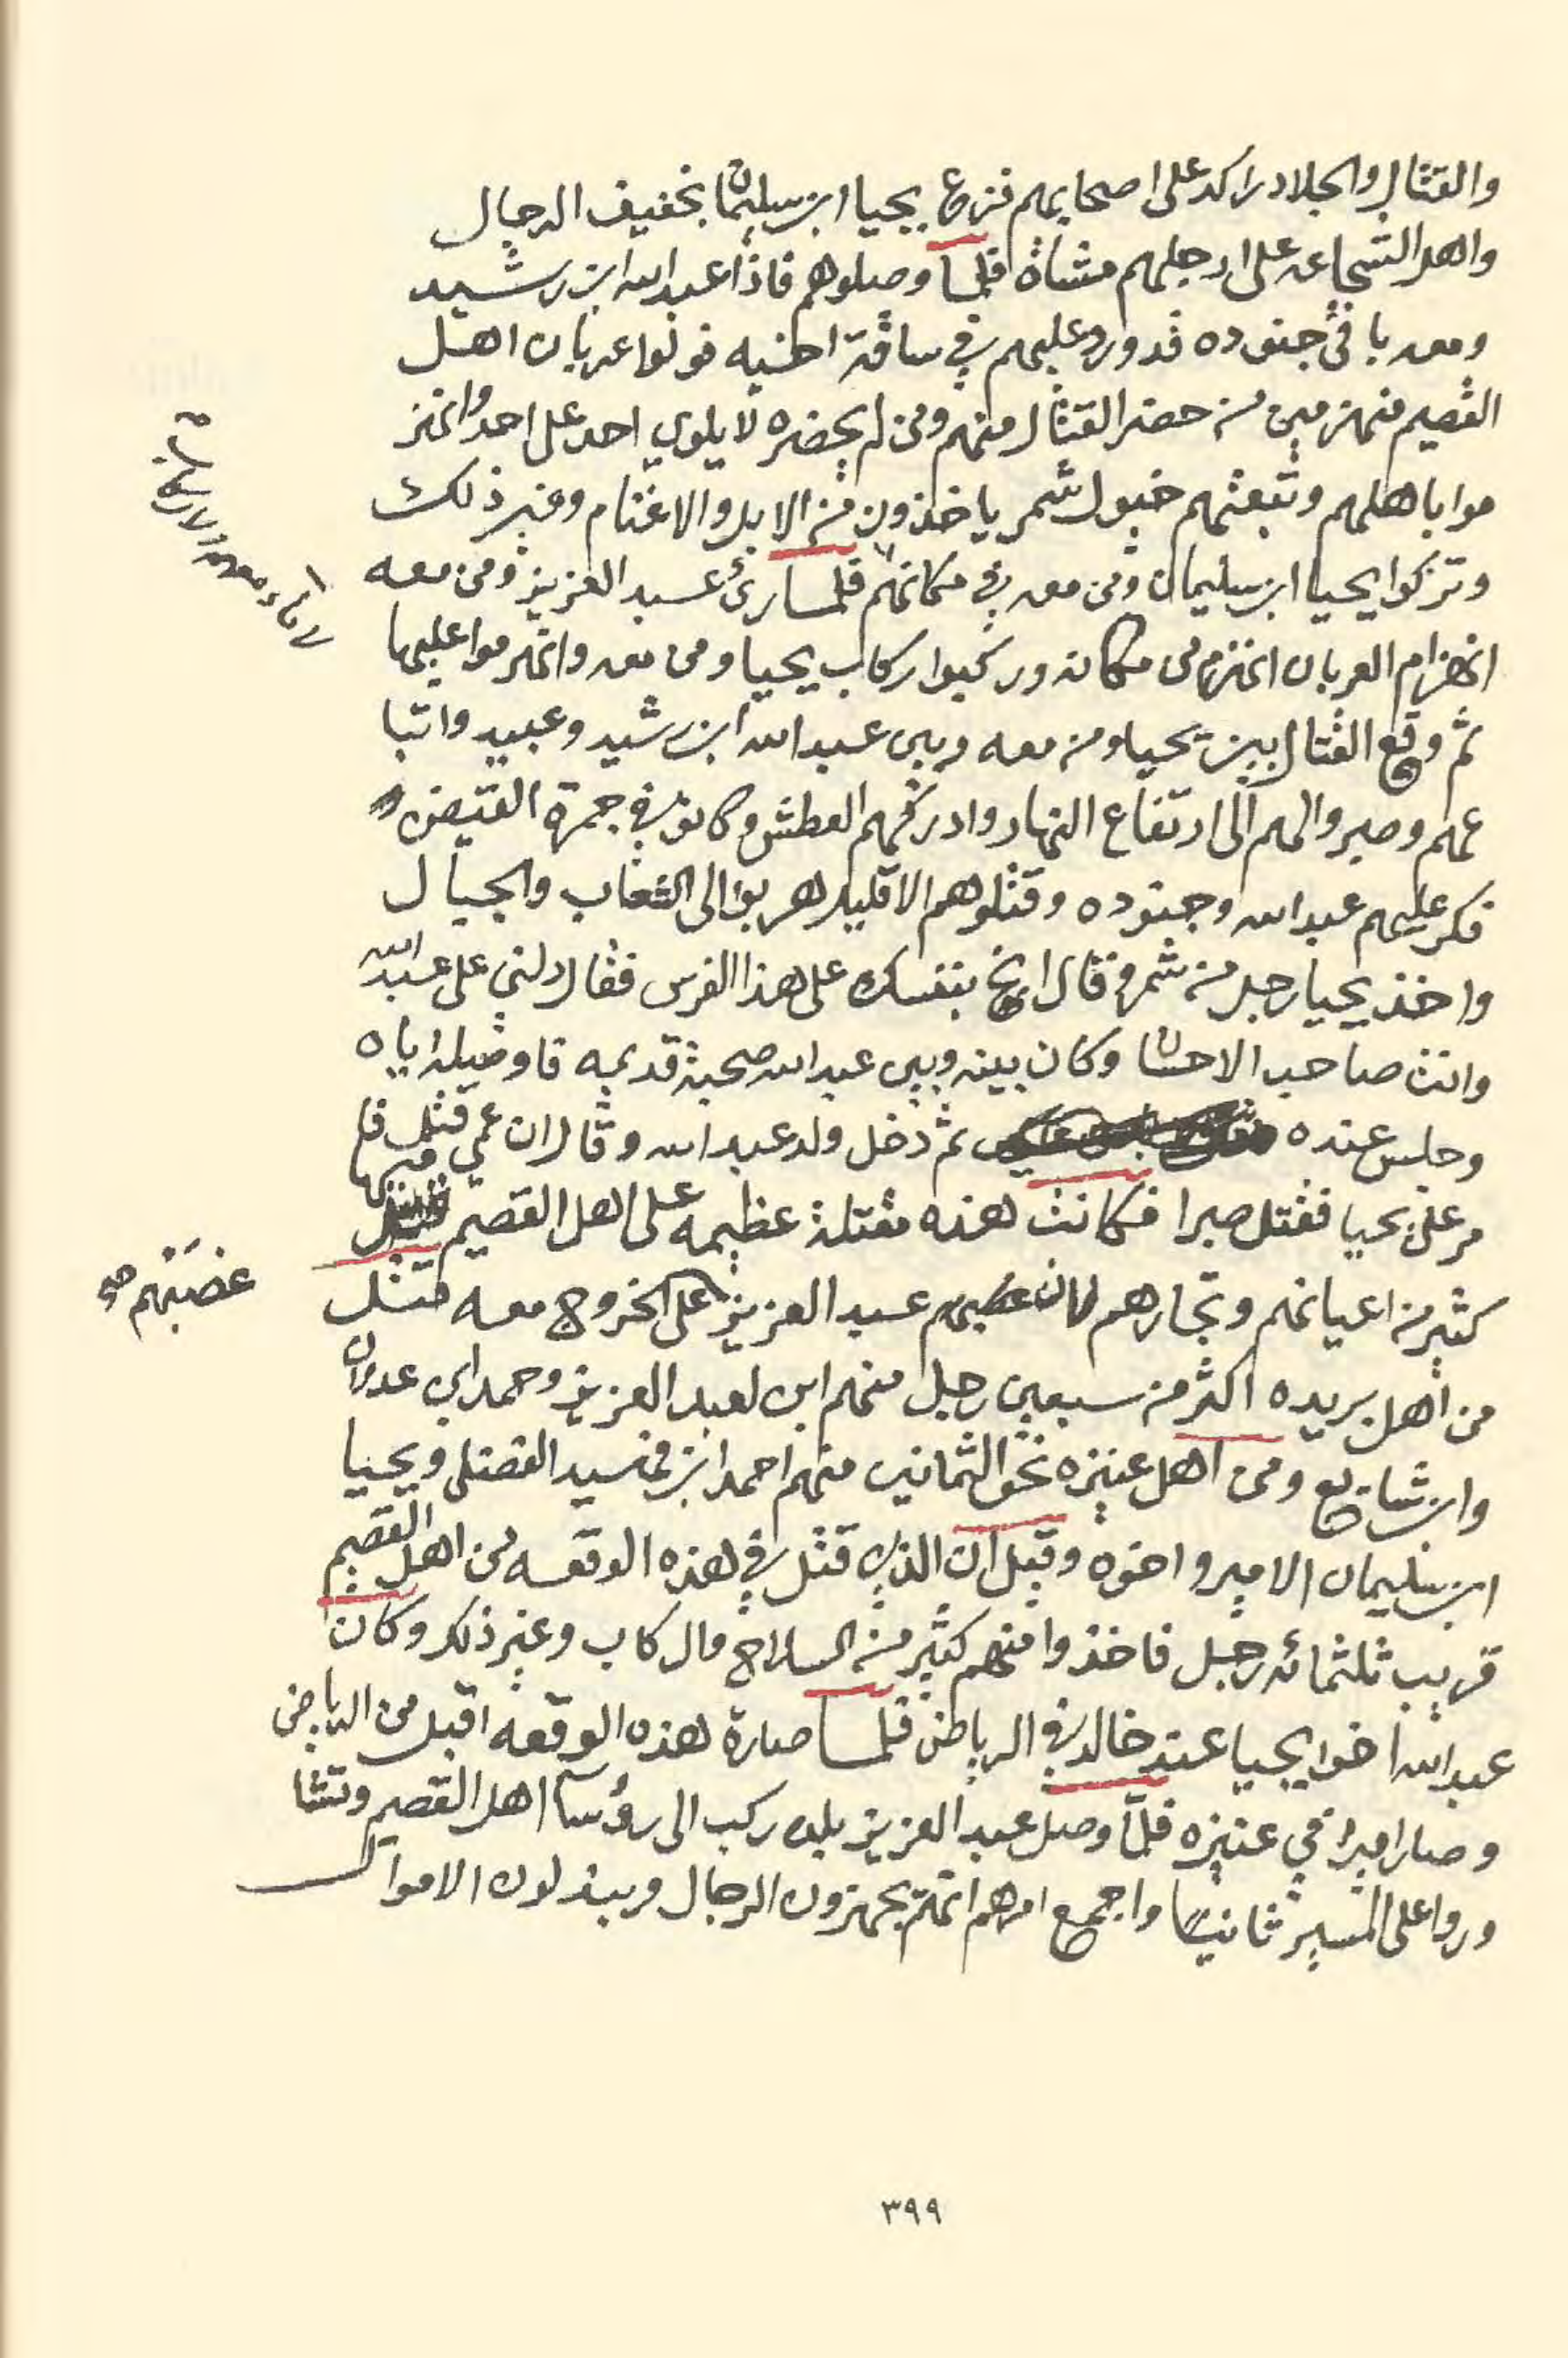 والقتال والجلاد راكد على اصحابهم فزع يحيا ابن سليمان بخفيف الرجال
واهل الشجاعه على ارجلهم مشاة فلما وصلوهم فاذا عبدالله ابن رشيد
ومعه باقي جنوده قد ورد عليهم في ساقة اخيه فولوا عربان اهل
القصيم منهزمين من حضر القتال منهم ومن لم يحضره لا يلوي احد على احد وانهز
موا باهلهم وتبعتهم خيول شمر ياخذون من الابل والاغنام وغير ذلك
وتركوا يحيا ابن سليمان ومن معه في مكانهم فلما رئ عبد العزيز ومن معه
انهزام العربان انهزم من مكانه وركبوا ركاب يحيا ومن معه وانهزموا عليها
ثم وقع القتال بين يحيا ومن معه وبين عبدالله ابن رشيد وعبيد واتبا
عهم وصبروا لهم الى ارتفاع النهار وادركهم العطش وكانوا في جمرة القيض
فكر عليهم عبدالله وجنوده وقتلوهم الا قليل هربوا الى الشعاب والجبال
واخذ يحيا رجل من شمر وقال انج بنفسك على هذا الفرس فقال دلني على عبدالله
وانت صاحب الاحسان وكان بينه وبين عبدالله صحبة قديمه فاوصله اياه
وجلس عنده ثم دخل ولد عبدالله وقال ان عمي قتل فا
مر على يحيا فقتل صبرا فكانت هذه مقتلة عظيمه على اهل القصيم قتل فيها
كثير من اعيانهم وتجارهم لان عبد العزيز على الخروج معه قتل
غصبهم صح
من اهل بريده اكثر من سبعين رجل منهم ابن لعبد العزيز وحمد ابن عدوان
وابن شايع ومن اهل عنيزه نحو الثمانين منهم احمد ابن سيد الفضلي ويحيا
ابن سليمان الامير واخوه وقيل ان الذي قتل في هذه الوقعه من اهل القصيم
قريب ثلثمائه رجل فاخذوا منهم كثير من السلاح والركاب وغير ذلك وكان
عبدالله اخوا يحيا عند خالد في الرياض فلما صارة هذه الوقعه اقبل من الرياض
وصار اميرا في عنيزه فلما وصل عبد العزيز بلده ركب الى رؤسآ اهل القصيم وتشا
وروا على المسير ثانيا واجمع امرهم انهم يجهزون الرجال ويبذلون الاموال
٣٩٩